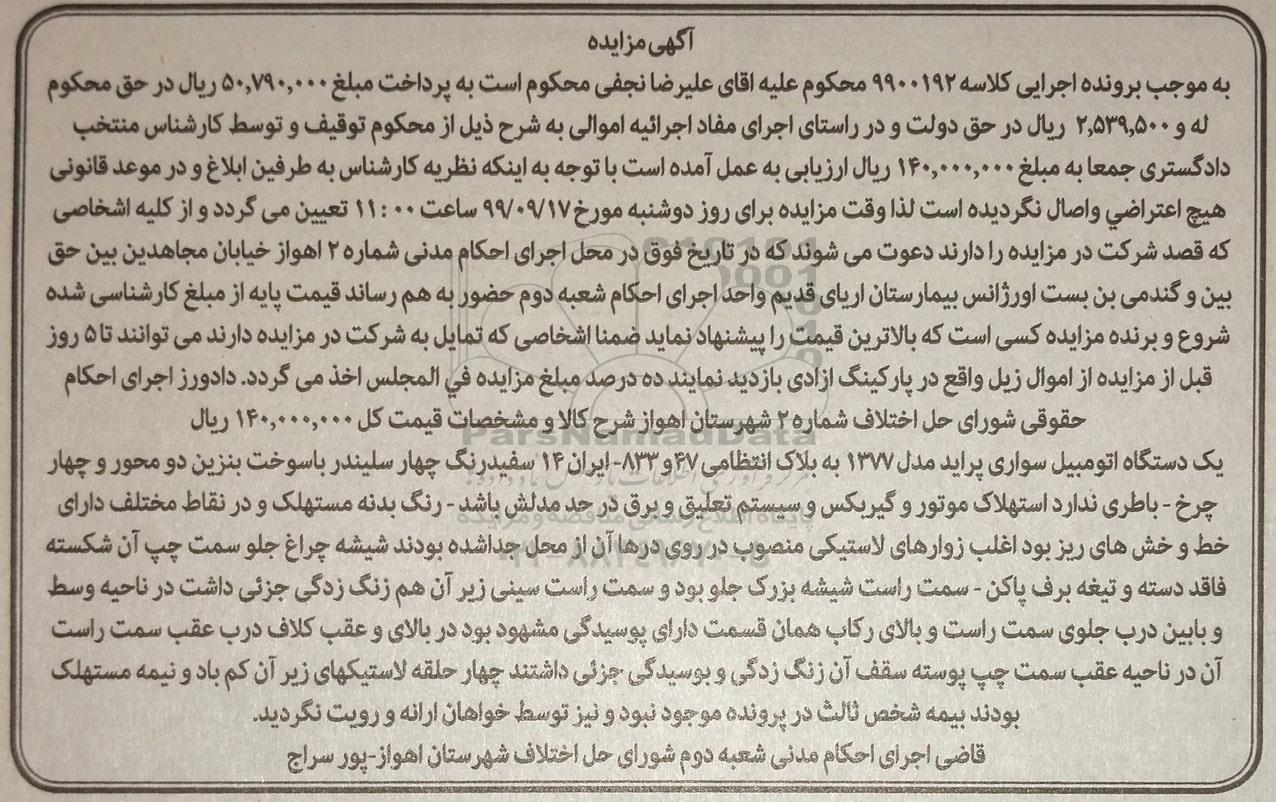 آگهی مزایده
به موجب برونده اجرایی کلاسه ۹۹۰۰۱۹۲ محکوم علیه اقای علیرضا نجفی محکوم است به پرداخت مبلغ ۵۰,۷۹۰,۰۰۰ ریال در حق محکوم
له و ۲,۵۳۹,۵۰۰ ریال در حق دولت و در راستای اجرای مفاد اجرائیه اموالی به شرح ذیل از محکوم توقیف و توسط کارشناس منتخب
دادگستری جمعا به مبلغ ۱۴۰,۰۰۰,۰۰۰ ریال ارزیابی به عمل آمده است با توجه به اینکه نظریه کارشناس به طرفین ابلاغ و در موعد قانونی
هیچ اعتراضي واصال نگردیده است لذا وقت مزایده برای روز دوشنبه مورخ ۹۹/۰۹/۱۷ ساعت ۰۰ : ۱۱ تعیین می گردد و از کلیه اشخاصی
که قصد شرکت در مزایده را دارند دعوت می شوند که در تاریخ فوق در محل اجرای احکام مدنی شماره ۲ اهواز خیابان مجاهدین بین حق
بین و گندمی بن بست اورژانس بیمارستان اریای قدیم واحد اجرای احکام شعبه دوم حضور به هم رساند قیمت پایه از مبلغ کارشناسی شده
شروع و برنده مزایده کسی است که بالاترین قیمت را پیشنهاد نماید ضمنا اشخاصی که تمایل به شرکت در مزایده دارند می توانند تا ۵ روز
قبل از مزایده از اموال زیل واقع در پارکینگ ازادی بازدید نمایند ده درصد مبلغ مزایده في المجلس اخذ می گردد. دادورز اجرای احکام
حقوقی شورای حل اختلاف شماره ۲ شهرستان اهواز شرح کالا و مشخصات قیمت کل ۱۴۰,۰۰۰,۰۰۰ ریال
یک دستگاه اتومبیل سواری پراید مدل ۱۳۷۷ به بلاک انتظامی ۴۷و ۸۳۳- ایران ۱۴ سفیدرنگ چهار سلیندر باسوخت بنزین دو محور و چهار
چرخ - باطری ندارد استهلاک موتور و گیربکس و سیستم تعلیق و برق در حد مدلش باشد - رنگ بدنه مستهلک و در نقاط مختلف دارای
خط و خش های ریز بود اغلب زوارهای لاستیکی منصوب در روی درها آن از محل جداشده بودند شیشه چراغ جلو سمت چپ آن شکسته
فاقد دسته و تیغه برف پاکن - سمت راست شیشه بزرک جلو بود و سمت راست سینی زیر آن هم زنگ زدگی جزئی داشت در ناحیه وسط
و بابین درب جلوی سمت راست و بالای رکاب همان قسمت دارای پوسیدگی مشهود بود در بالای و عقب کلاف درب عقب سمت راست
آن در ناحیه عقب سمت چپ پوسته سقف آن زنگ زدگی و بوسیدگی جزئی داشتند چهار حلقه لاستیکهای زیر آن کم باد و نیمه مستهلک
بودند بیمه شخص ثالث در پرونده موجود نبود و نیز توسط خواهان ارانه و رویت نگردید.
قاضی اجرای احکام مدنی شعبه دوم شورای حل اختلاف شهرستان اهواز-پور سراج
ParsNamadData